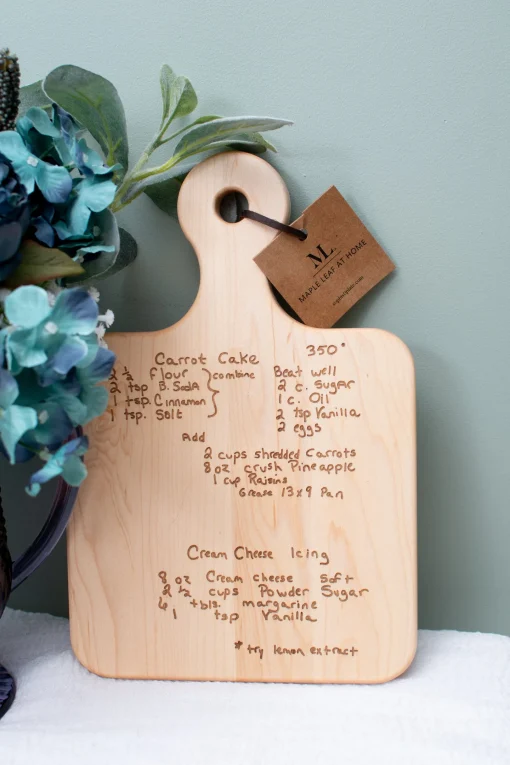 ML.
MAPLE LEAF AT HOME
Carrot Cake 350°
2 ½ flour } combine
2 tsp B. Soda
1 tsp. Cinnamon
1 tsp. Salt
Beat well
2 c. Sugar
1 c. Oil
2 tsp Vanilla
2 eggs
Add
2 cups shredded Carrots
8 oz crush Pineapple
1 cup Raisins
Grease 13x9 Pan
Cream Cheese Icing
8 oz Cream cheese soft
2 ½ cups Powder Sugar
6 tbls. margarine
1 tsp Vanilla
*try lemon extract